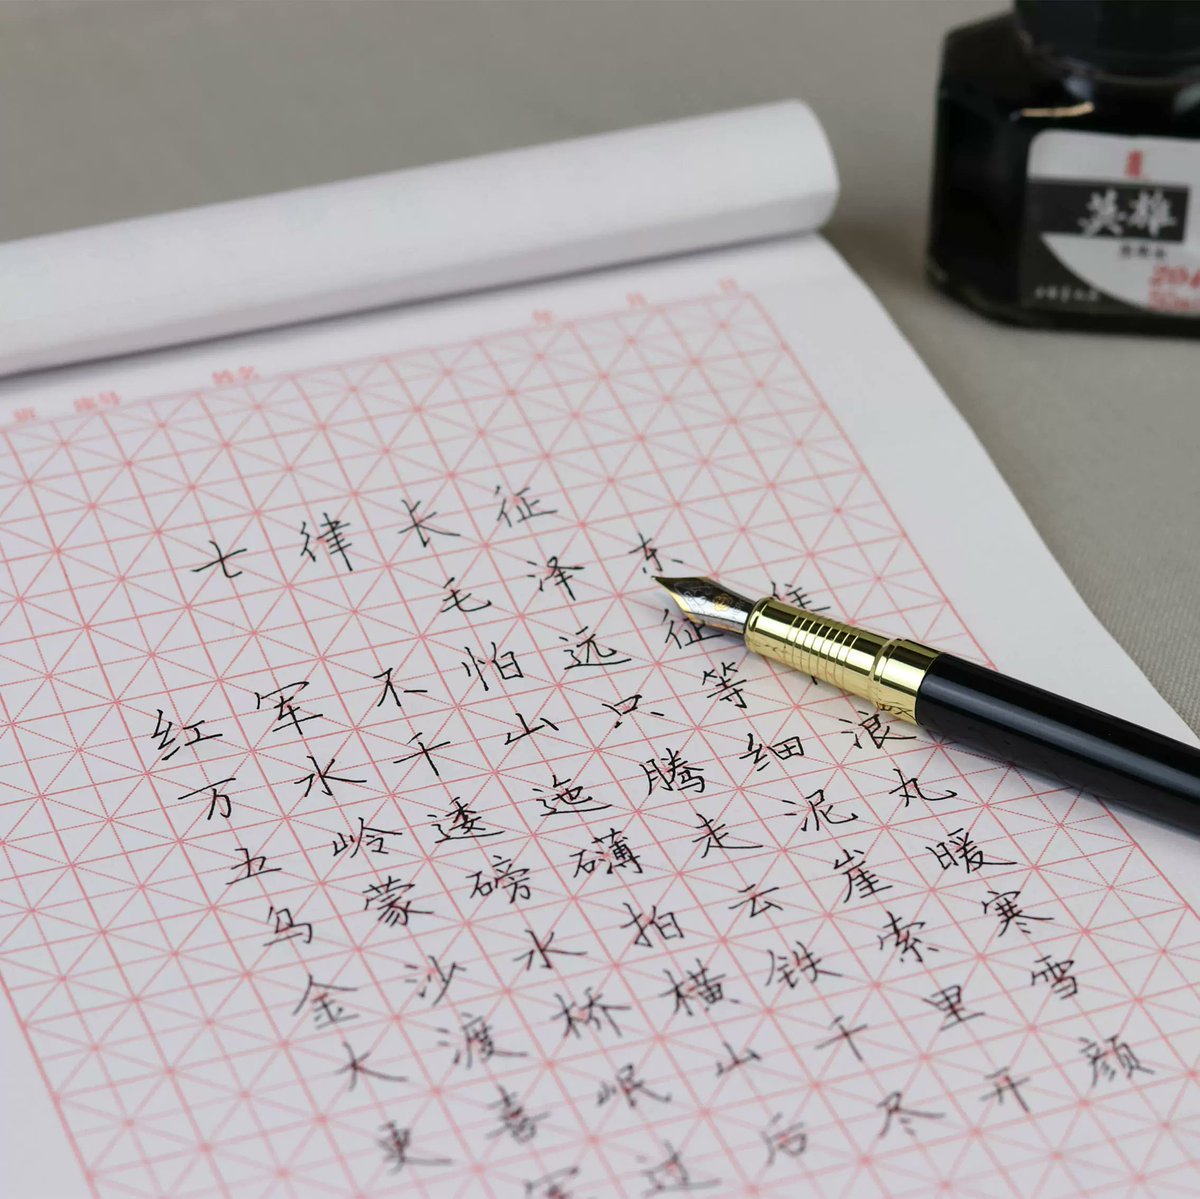 姓名 年 月 日
七律长征
毛泽东
红军不怕远征
万水千山只等
五岭逶迤腾细浪
乌蒙磅礴走泥丸
金沙水拍云崖暖
大渡桥横铁索寒
更喜岷山千里雪
军过后尽开颜
英雄